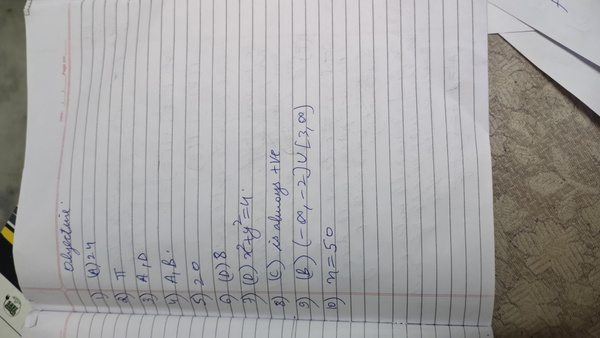 Objective.
1) (A) 24
2) π
3) A, D
4) A, B.
5) 20
6) (D) 8
7) (D) x²+y²=4.
8) (C) is always +ve
9) (B) (-∞, -2] ∪ [3, ∞)
10) n=50